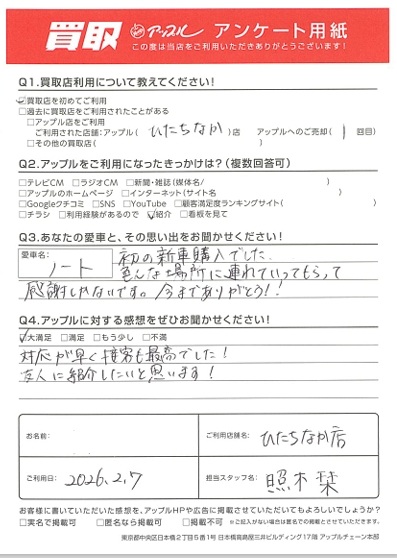 買取 アップル アンケート用紙
この度は当店をご利用いただきありがとうございます！
Q1.買取店利用について教えてください！
☑買取店を初めてご利用
□過去に買取店をご利用されたことがある
□アップル店をご利用
ご利用された店舗:アップル( ひたちなか )店 アップルへのご売却( 1 回目)
□その他の買取店( )
Q2.アップルをご利用になったきっかけは？(複数回答可)
□テレビCM □ラジオCM □新聞・雑誌(媒体名/ )
□アップルのホームページ □インターネット(サイト名 )
□Googleクチコミ □SNS □YouTube □顧客満足度ランキングサイト( )
□チラシ □利用経験があるので ☑紹介 □看板を見て
Q3.あなたの愛車と、その思い出をお聞かせください！
愛車名:
ノート
初の新車購入でした、
色んな場所に連れていってもらって
感謝しかないです。今までありがとう！！
Q4.アップルに対する感想をぜひお聞かせください！
☑大満足 □満足 □もう少し □不満
対応が早く接客も最高でした！
友人に紹介したいと思います！
お名前:
ご利用店舗名: ひたちなか店
ご利用日: 2026.2.7
担当スタッフ名: 照木 栞
お客様に書いていただいた感想を、アップルHPや広告に掲載させていただいてもよろしいでしょうか？
□実名で掲載可 □匿名なら掲載可 □掲載不可 ※ご記入がない場合は匿名での掲載とさせていただきます。
東京都中央区日本橋2丁目5番1号 日本橋髙島屋三井ビルディング17階 アップルチェーン本部